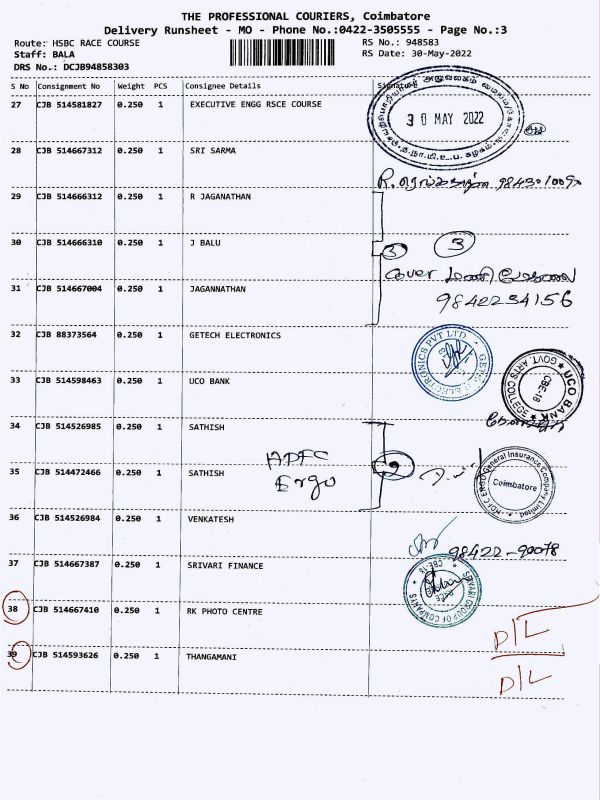 THE PROFESSIONAL COURIERS, Coimbatore
Delivery Runsheet - MO - Phone No.:0422-3505555 - Page No.:3
Route: HSBC RACE COURSE
RS No.: 948583
Staff: BALA
RS Date: 30-May-2022
DRS No.: DCJB94858303
S No Consignment No Weight PCS Consignee Details Signature
27 CJB 514581827 0.250 1 EXECUTIVE ENGG RSCE COURSE
30 MAY 2022
28 CJB 514667312 0.250 1 SRI SARMA
29 CJB 514666312 0.250 1 R JAGANATHAN
30 CJB 514666310 0.250 1 J BALU
3 3
31 CJB 514667004 0.250 1 JAGANNATHAN
9842234156
32 CJB 88373564 0.250 1 GETECH ELECTRONICS
33 CJB 514598463 0.250 1 UCO BANK
UCO BANK
GOVT ARTS COLLEGE
CBE-18
34 CJB 514526985 0.250 1 SATHISH
HDFC
Ergo
35 CJB 514472466 0.250 1 SATHISH
HDFC ERGO General Insurance Company Limited
Coimbatore
36 CJB 514526984 0.250 1 VENKATESH
98422-90078
37 CJB 514667387 0.250 1 SRIVARI FINANCE
SRIVARI GROUP OF COMPANYS
CBE-18
38 CJB 514667410 0.250 1 RK PHOTO CENTRE
D/L
39 CJB 514593626 0.250 1 THANGAMANI
D/L